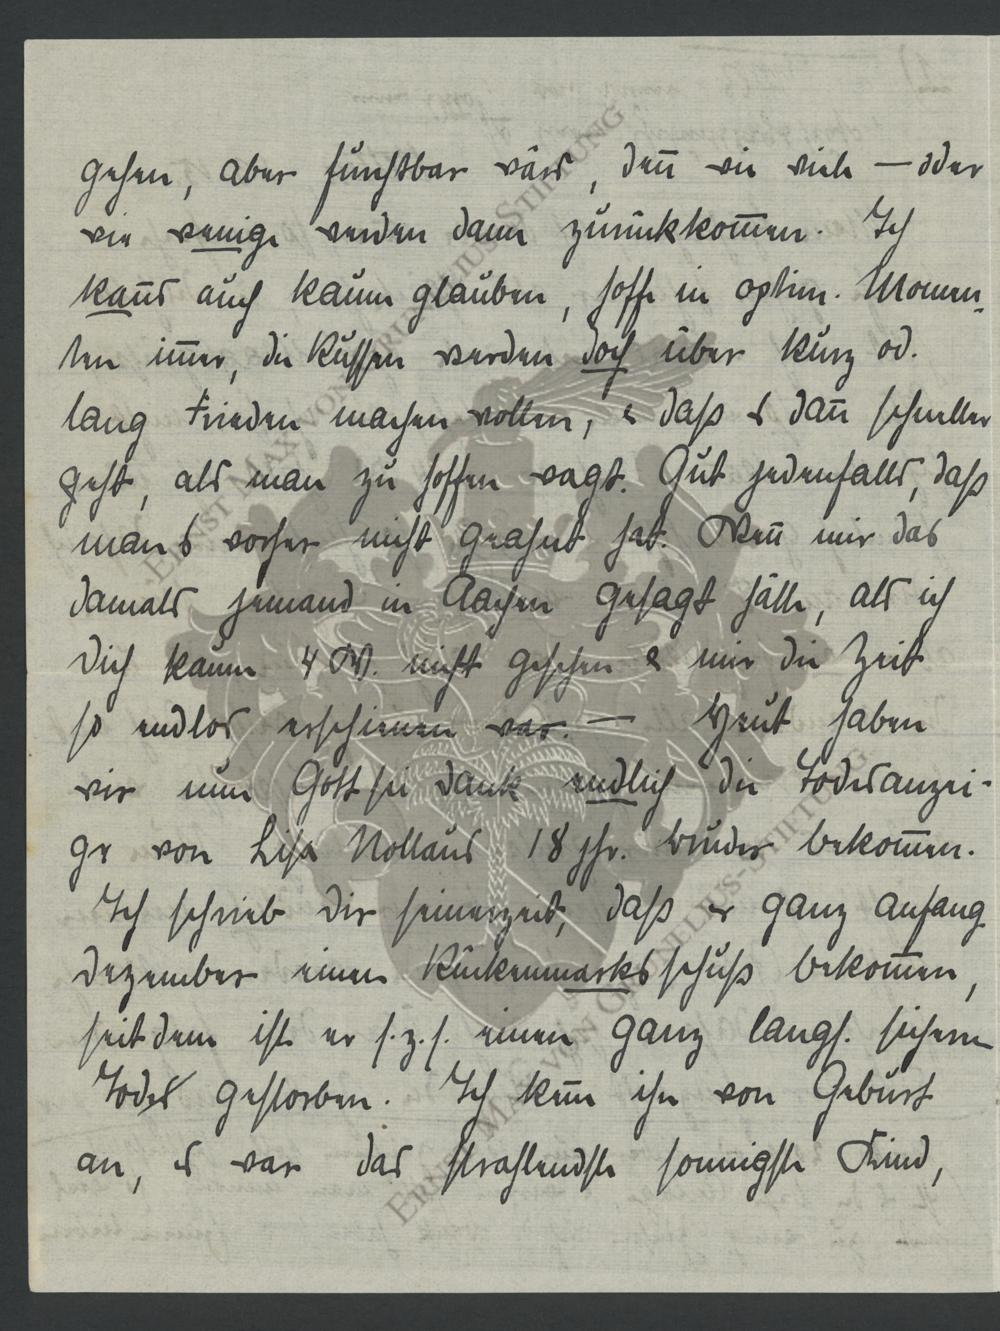 gehen, aber furchtbar wärs, denn wie viele — oder
wie wenige werden dann zurückkom̅en. Ich
kan̅s auch kaum glauben, hoffe in optim. Momen-
ten im̅er, die Russen werden doch über kurz od.
lang Frieden machen wollen, & daß es dan̅ schneller
geht, als man zu hoffen wagt. Gut jedenfalls, daß
man's vorher nicht geahnt hat. Wen̅ mir das
damals jemand in Aachen gesagt hätte, als ich
Dich kaum 4 W. nicht gesehen & mir die Zeit
so endlos erschienen war. — Heut haben
wir nun Gott sei dank endlich die Todesanzei-
ge von Lisa Nollaus 18 jhr. Bruder bekom̅en.
Ich schrieb Dir seinerzeit, daß er ganz anfang
Dezember einen Rückenmarksschuß bekom̅en,
seitdem ist er s.z.s. einen ganz langs. sichern
Todes gestorben. Ich ken̅ ihn von Geburt
an, es war das strahlendste sonnigste Kind,
ERNST MAX VON GRUNELIUS-STIFTUNG
ERNST MAX VON GRUNELIUS-STIFTUNG